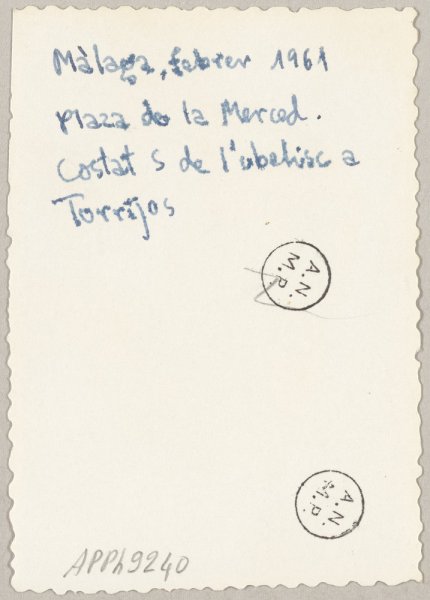 Màlaga, febrer 1961
Plaza de la Merced.
Costat S de l'obelisc a
Torrijos
A.N.
M.P.
A.N.
M.P.
APPh9240